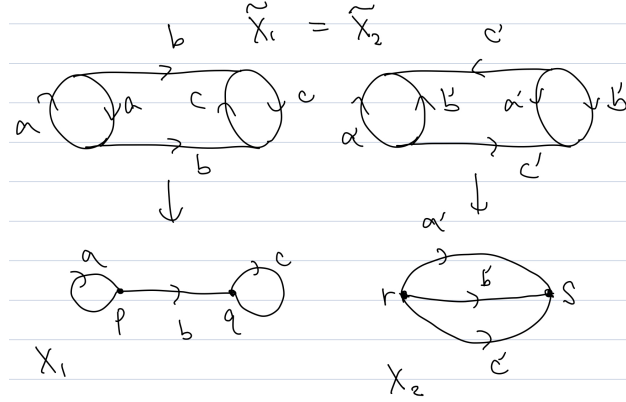 X̃₁ = X̃₂
b c'
a a c c a' b' a' b'
b c'
a c a'
p b q r b' s
c'
X₁ X₂